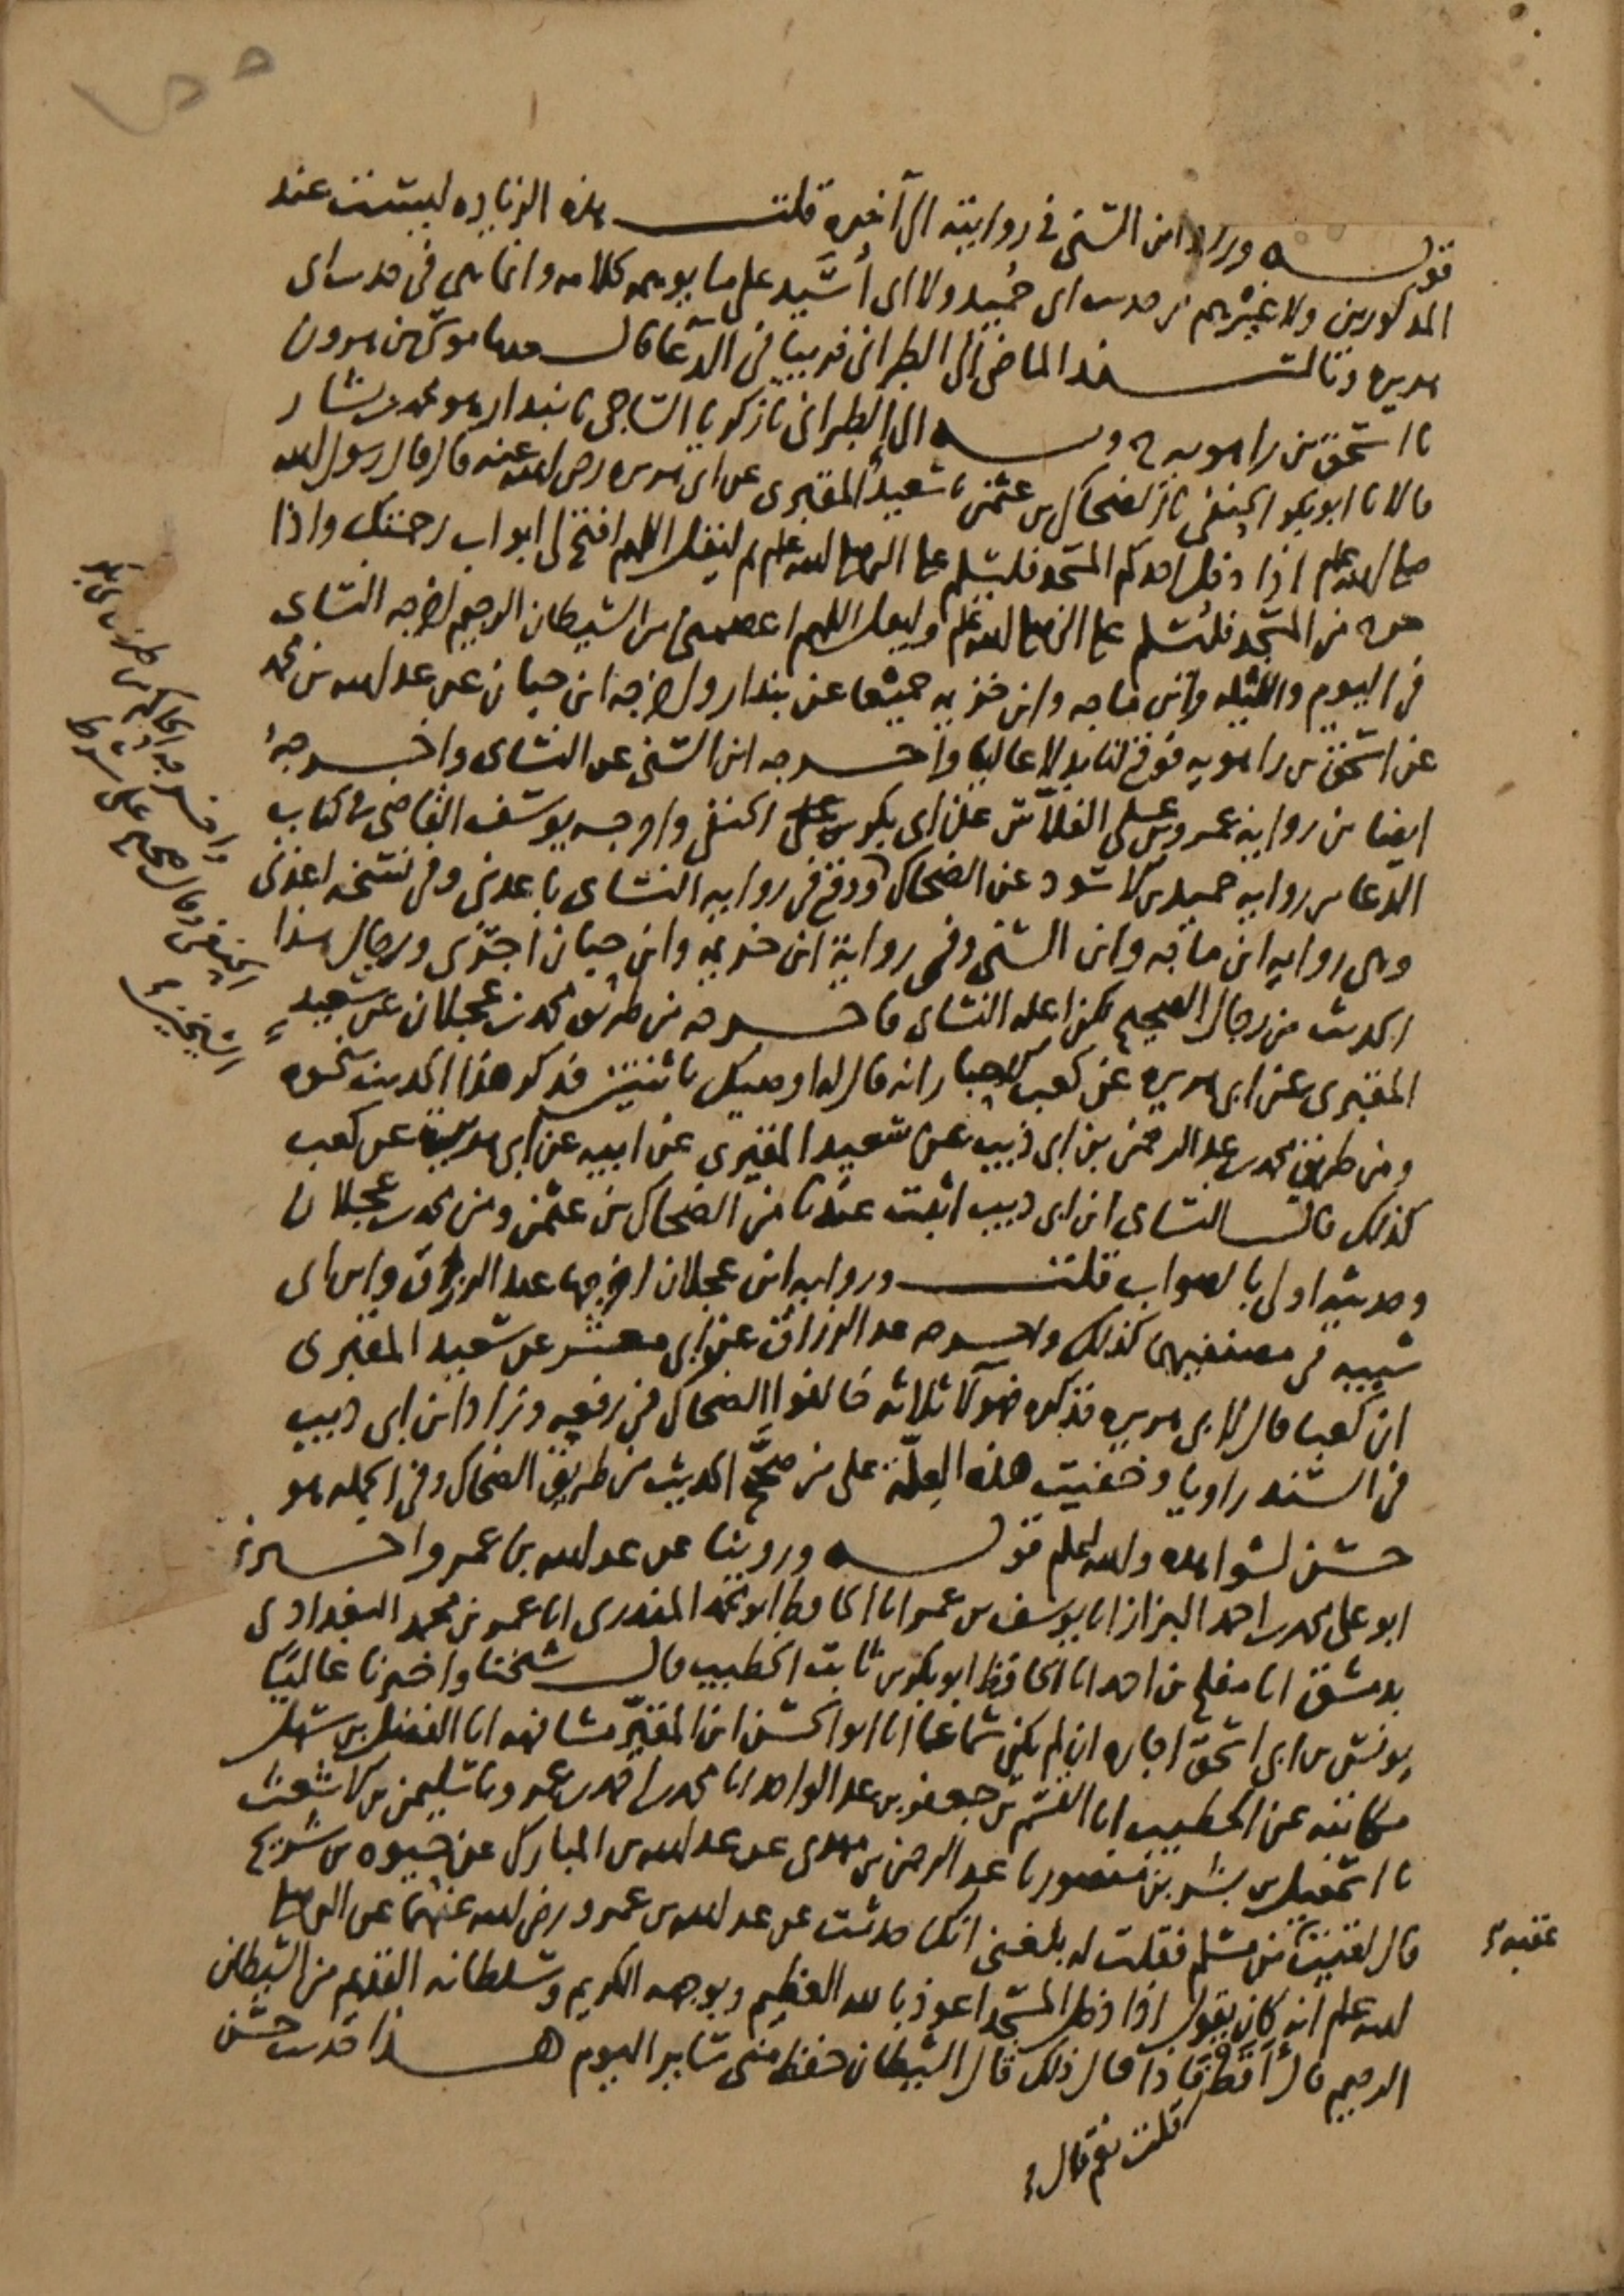 قوله وزاد ابن السني في روايته الى آخره قلت هذه الزيادة ليست عند
المذكورين ولا غيرهم من حديث ابي حميد ولا ابي أسيد على ما يوهمه كلامه وانما هي في حديث ابي
هريرة وبالسند الماضي الى الطبراني قريبا في الدعا قال حدثنا موسى بن هرون
نا اسحق بن راهويه ح وبه الى الطبراني نا زكريا الساجي نا بندار هو محمد بن بشار
قالا نا ابو بكر الحنفي نا الضحاك بن عثمن نا سعيد المقبري عن ابي هريرة رضي الله عنه قال قال رسول الله
صلى الله عليه وسلم اذا دخل احدكم المسجد فليسلم على النبي صلى الله عليه وسلم ثم ليقل اللهم افتح لي ابواب رحمتك واذا
خرج من المسجد فليسلم على النبي صلى الله عليه وسلم وليقل اللهم اعصمني من الشيطان الرجيم اخرجه النسائي
في اليوم والليلة وابن ماجه وابن خزيمة جميعا عن بندار واخرجه ابن حبان عن عبد الله بن محمد
عن اسحق بن راهويه فوقع لنا بدلا عاليا واخرجه ابن السني عن النسائي واخرجه
ايضا من رواية عمرو بن علي الفلاس عن ابي بكر الحنفي واخرجه يوسف القاضي في كتاب
الدعا من رواية حميد بن الاسود عن الضحاك ووقع في رواية النسائي باعدني وفي نسخة اعذني
وهي رواية ابن ماجه وابن السني وفي رواية ابن خزيمة وابن حبان اجرني ورجال هذا
الحديث من رجال الصحيح لكن اعله النسائي فاخرجه من طريق محمد بن عجلان عن سعيد
المقبري عن ابي هريرة عن كعب الاحبار انه قال له اوصيك باثنتين فذكر هذا الحديث بنحوه
ومن طريق محمد بن عبد الرحمن بن ابي ذيب عن سعيد المقبري عن ابيه عن ابي هريرة عن كعب
كذلك قال النسائي ابن ابي ذيب اثبت عندنا من الضحاك بن عثمن ومن محمد بن عجلان
وحديثه اولى بالصواب قلت ورواية ابن عجلان اخرجها عبد الرزاق وابن ابي
شيبه في مصنفيهما كذلك واخرجه عبد الرزاق عن ابي معشر عن سعيد المقبري
ان كعبا قال لابي هريرة فذكره فهولآ ثلاثه خالفوا الضحاك في رفعه وزاد ابن ابي ذيب
في السند راويا وخفيت هذه العلة على من صحح الحديث من طريق الضحاك وفي الجمله هو
حسن لشواهده والله اعلم قوله وروينا عن عبد الله بن عمرو اخبرني
ابو علي محمد بن احمد البزاز انا يوسف بن عمر انا الحافظ ابو محمد المنذري انا عمر بن محمد البغدادي
بدمشق انا مفلح بن احمد انا الحافظ ابو بكر بن ثابت الخطيب قال شيخنا واخبرنا عاليا
يونس بن ابي اسحق اجازه ان لم يكن سماعا انا ابو الحسن ابن المقير مشافهه انا الفضل بن سهل
مكاتبه عن الخطيب انا القسم بن جعفر بن عبد الواحد انا محمد بن احمد بن عمرو نا سليمن بن الاشعث
نا اسمعيل بن بشر بن منصور نا عبد الرحمن بن مهدي عن عبد الله بن المبارك عن حيوه بن شريح
قال لقيت عقبة بن مسلم فقلت له بلغني انك حدثت عن عبد الله بن عمرو رضي الله عنهما عن النبي صلى
الله عليه وسلم انه كان يقول اذا دخل المسجد اعوذ بالله العظيم وبوجهه الكريم وسلطانه القديم من الشيطان
الرجيم قال أقط قلت نعم قال فاذا قال ذلك قال الشيطان حفظ مني ساير اليوم هذا حديث حسن
واخرجه الحاكم من طريق ابي بكر
الحنفي وقال صحيح على شرط
الشيخين